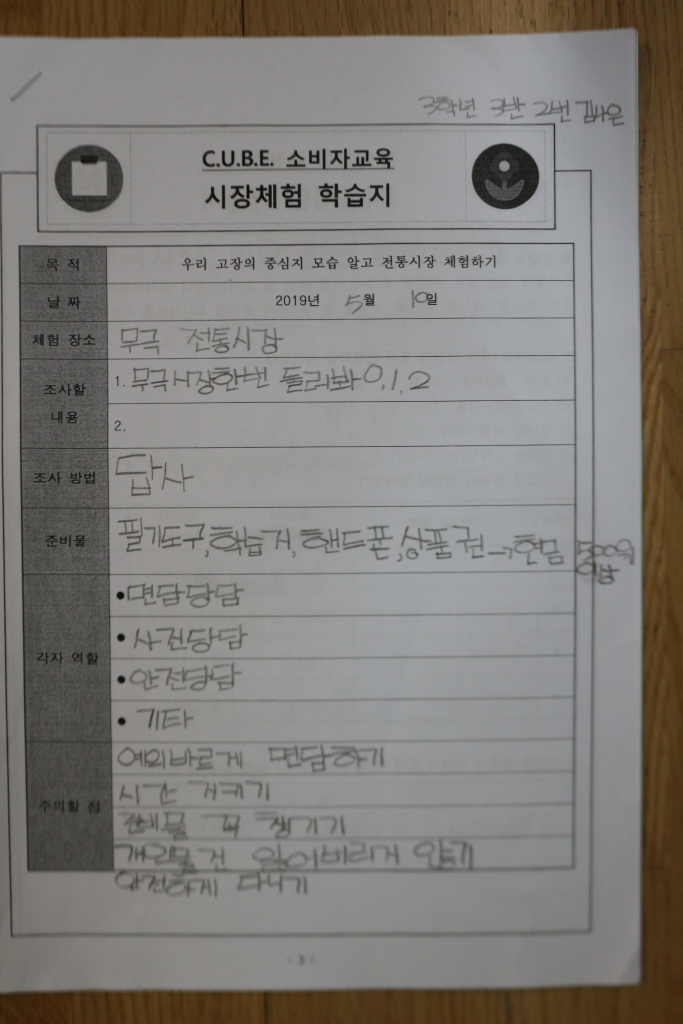 3학년 3반 2번 김나은
C.U.B.E. 소비자교육
시장체험 학습지
목 적 우리 고장의 중심지 모습 알고 전통시장 체험하기
날 짜 2019년 5월 10일
체험 장소 무극 전통시장
조사할 내용 1. 무극시장한번 둘러봐 0,1,2
2.
조사 방법 답사
준비물 필기도구, 학습지, 핸드폰, 상품권→현금 500원
이상
각자 역할 •면담당담
•사진당담
•안전당담
•기타
주의할 점 예의바르게 면담하기
시간 지키기
준비물 꼭 챙기기
개인물건 잃어버리지 안기
안전하게 다니기
- 3 -